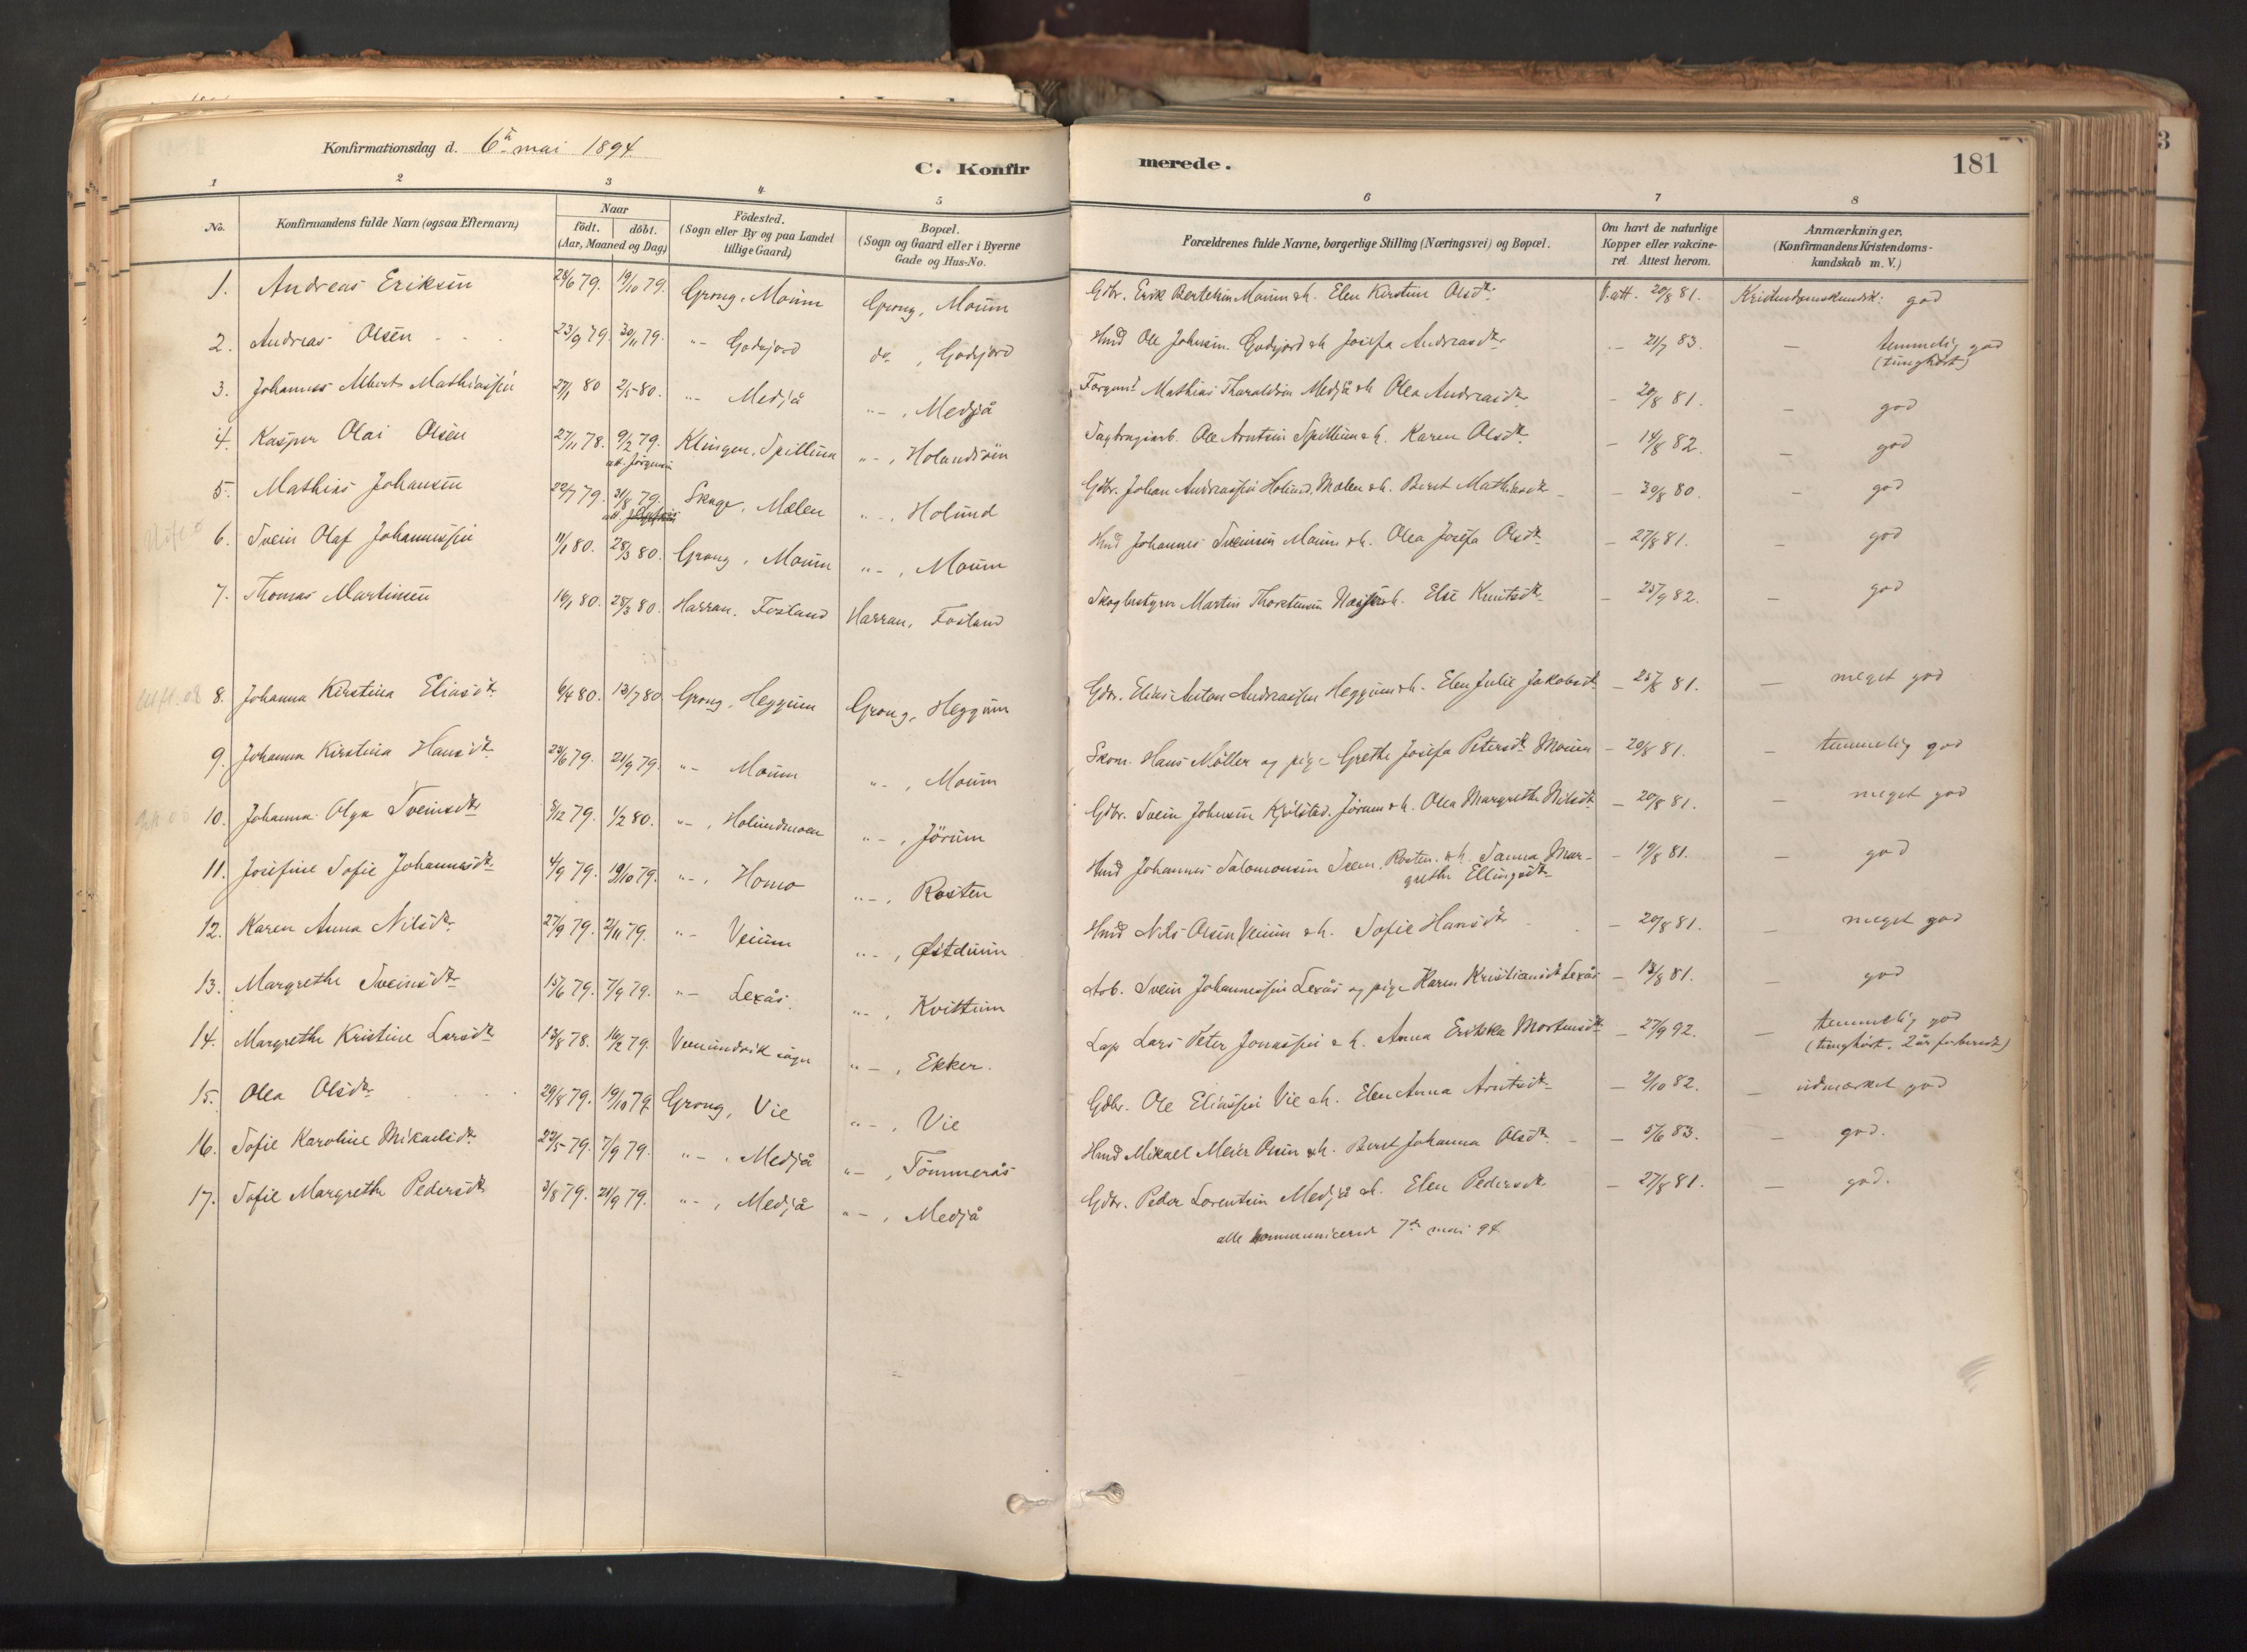 Konfirmationsdag d. 6te mai 1894.
C. Konfir
merede.
181
1 2 3 4 5 6 7 8
No.
Konfirmandens fulde Navn (ogsaa Efternavn)
Naar
födt. döbt.
(Aar, Maaned og Dag)
Födested.
(Sogn eller By og paa Landet
tillige Gaard)
Bopæl.
(Sogn og Gaard eller i Byerne
Gade og Hus-No.
Forældrenes fulde Navne, borgerlige Stilling (Næringsvei) og Bopæl.
Om havt de naturlige
Kopper eller vakcine-
ret. Attest herom.
Anmærkninger.
(Konfirmandens Kristendoms-
kundskab m. V.)
1. Andreas Eriksen 79. 19/10 79. Grong, Moum Grong, Moum Gbr. Erik Bertelsen Moum & h. Elen Kirstine Olsdtr. V. att. 20/8 81. Kristendomskundsk: god
2. Andreas Olsen 23/9 79. 30/11 79. "- Godejord do, Godejord Hmd Ole Johnsen Godejord & h. Josefa Andreasdtr - 21/7 83. - temmelig god
(tunghört)
3. Johannes Albert Mathiassen 27/1 80 2/5 80. "- Medjå "-, Medjå Mathias Tharaldsen Medjå & h. Olea Andreasdtr - 20/8 81. - god
4. Kasper Olai Olsen 27/11 78. 9/2 79. Klingen, Spillum "-, Holandsöen Ole Arntsen Spillum & h. Karen Olsdtr. - 14/8 82. - god
5. Mathias Johansen 22/7 79. 31/8 79. Skage, Mælen "-, Holund Gbr. Johan Andreassen Holund, Mælen & h. Beret Mathiasdtr - 30/8 80. - god
6. Svein Olaf Johannessen 11/1 80. 28/3 80. Grong, Moum "-, Moum Hmd Johannes Sveinsen Moum & h. Olea Josefa Olsdtr - 27/8 81. - god
7. Thomas Martinsen 16/1 80. 28/3 80. Harran, Fosland Harran, Fosland Skogbestyrer Martin Thorstensen & h. Else Knutsdtr - 25/9 82. - god
8. Johanna Kirstina Eliasdtr 6/4 80. 13/7 80 Grong, Heggum Grong, Heggum Gbr. Elias Anton Andreassen Heggum & h. Elen Julie Jakobsdtr - 25/8 81. - meget god
9. Johanna Kirstina Hansdtr 79. 21/9 79. "- Moum "-, Moum Skom. Hans Möller og pige Grethe Josefa Petersdtr Moum - 20/8 81. - temmelig god
10. Johanna Olga Sveinsdtr 8/12 79. 1/2 80. "-, Holundmoen "-, Jörum Gbr. Svein Johnsen Kjölstad, Jörum & h. Olea Margrethe Nilsdtr - 20/8 81. - meget god
11. Josefine Sofie Johannesdtr 4/9 79. 19/10 79. "-, Homo "-, Rosten Hmd Johannes Salomonsen Seem, Rosten & h. Sanna Mar-
grethe Ellingsdtr - 19/8 81. - god
12. Karen Anna Nilsdtr 27/9 79. 2/11 79. "- Veium "-, Østduun Hmd Nils Olsen Veium & h. Sofie Hansdtr - 20/8 81. - meget god
13. Margrethe Sveinsdtr 15/6 79. 7/9 79. "- Lexås "-, Kvittum Arb. Svein Johannessen Lexås og pige Karen Kristiansdtr Lexås - 13/8 81. - god
14. Margrethe Kristine Larsdtr 13/8 78. 16/2 79. Vemundvik sogn "-, Ekker. Lap Lars Peter Jonassen & h. Anna Erikka Mortensdtr - 27/9 92. - temmelig god
(tunghört. 2 år forberedt)
15. Olea Olsdtr 29/8 79. 19/10 79. Grong, Vie "-, Vie Gbr. Ole Eliassen Vie & h. Elen Anna Arntsdtr - 2/10 82. - udmærket god
16. Sofie Karoline Mikaelsdtr 22/5 79. 7/9 79. "-, Medjå "-, Tömmerås Hmd Mikael Meier Olsen & h. Beret Johanna Olsdtr. - 5/6 83. - god.
17. Sofie Margrethe Pedersdtr 3/8 79. 21/9 79. "-, Medjå "-, Medjå Gbr. Peder Lorentsen Medjå & h. Elen Pedersdtr - 27/8 81. - god.
alle kommuniceret 7de mai 94